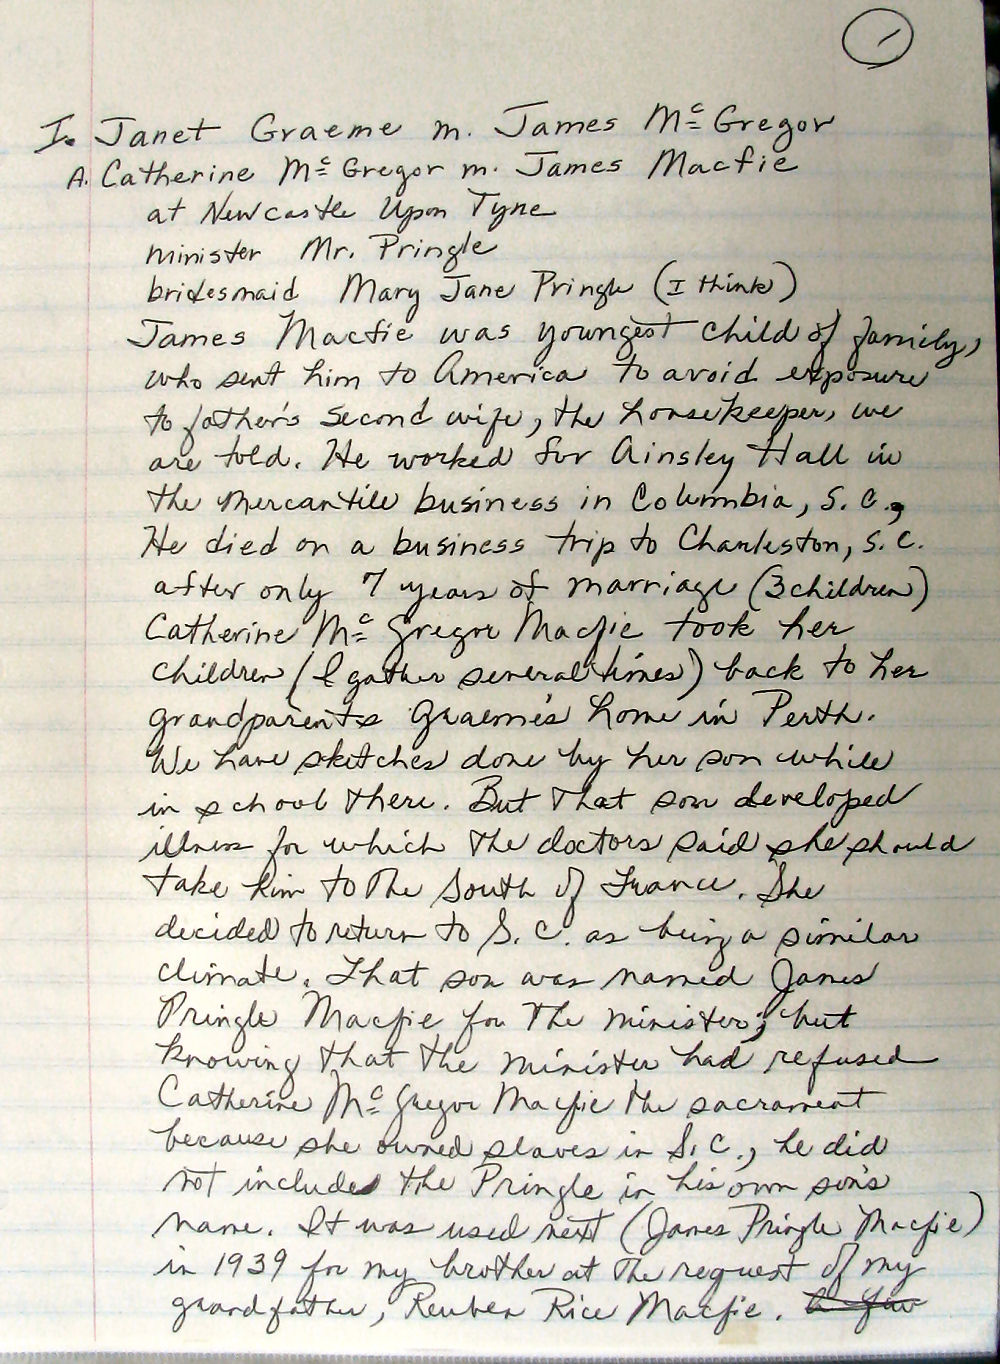 1
I. Janet Graeme m. James McGregor
A. Catherine McGregor m. James Macfie
at Newcastle Upon Tyne
minister Mr. Pringle
bridesmaid Mary Jane Pringle (I think)
James Macfie was youngest child of family,
who sent him to America to avoid exposure
to father's second wife, the housekeeper, we
are told. He worked for Ainsley Hall in
the mercantile business in Columbia, S.C.,
He died on a business trip to Charleston, S.C.
after only 7 years of marriage (3 children)
Catherine McGregor Macfie took her
children (I gather several times) back to her
grandparents Graeme's home in Perth.
We have sketches done by her son while
in school there. But that son developed
illness for which the doctors said she should
take him to the South of France. She
decided to return to S.C. as being a similar
climate. That son was named James
Pringle Macfie for the minister; but
knowing that the minister had refused
Catherine McGregor Macfie the sacrament
because she owned slaves in S.C., he did
not include the Pringle in his own son's
name. It was used next (James Pringle Macfie)
in 1939 for my brother at the request of my
grandfather, Reuben Rice Macfie.